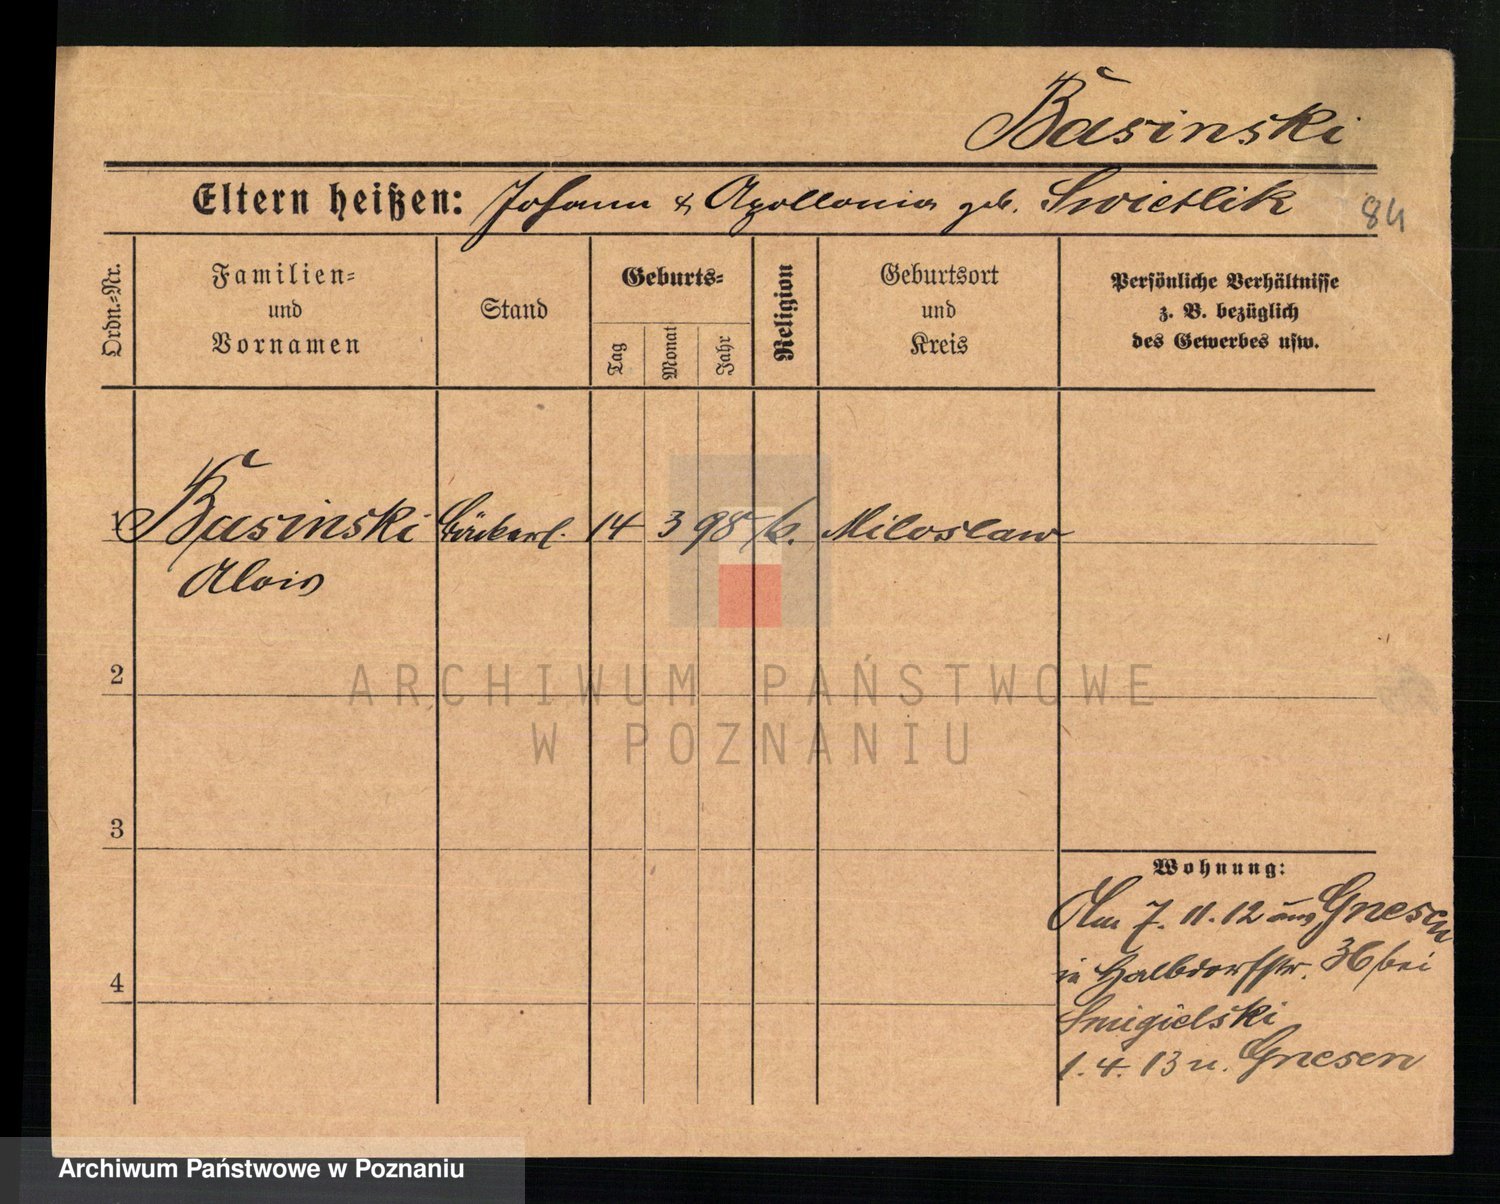 Basinski
Eltern heißen: Johann & Apollonia geb. Swietlik 84
Ordn.-Nr.
Familien-
und
Vornamen
Stand
Geburts-
Tag
Monat
Jahr
Religion
Geburtsort
und
Kreis
Persönliche Verhältnisse
z. B. bezüglich
des Gewerbes usw.
1 Basinski Bäckerl. 14 3 98 k. Miloslaw
Alois
2
3
4
Wohnung:
Am 7. 11. 12 aus Gnesen
in Halbdorfstr. 36 bei
Smigielski
1. 4. 13 n. Gnesen
ARCHIWUM PAŃSTWOWE
W POZNANIU
Archiwum Państwowe w Poznaniu